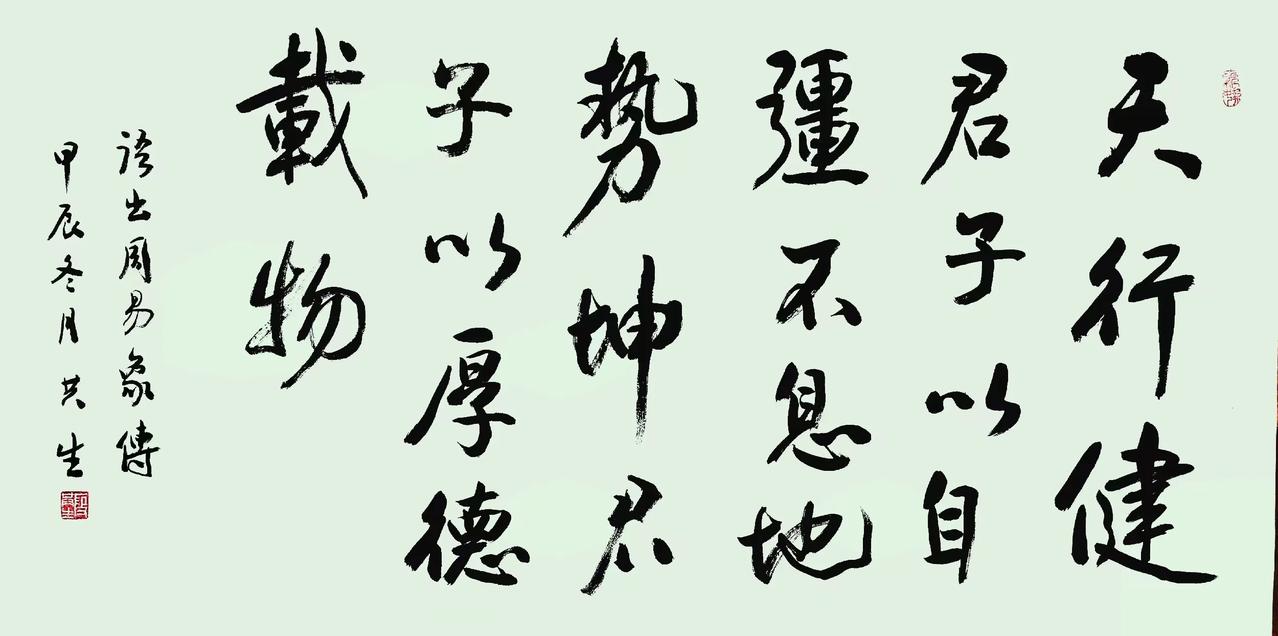 天行健
君子以自
彊不息地
勢坤君
子以厚德
載物
語出周易象傳
甲辰冬月共生